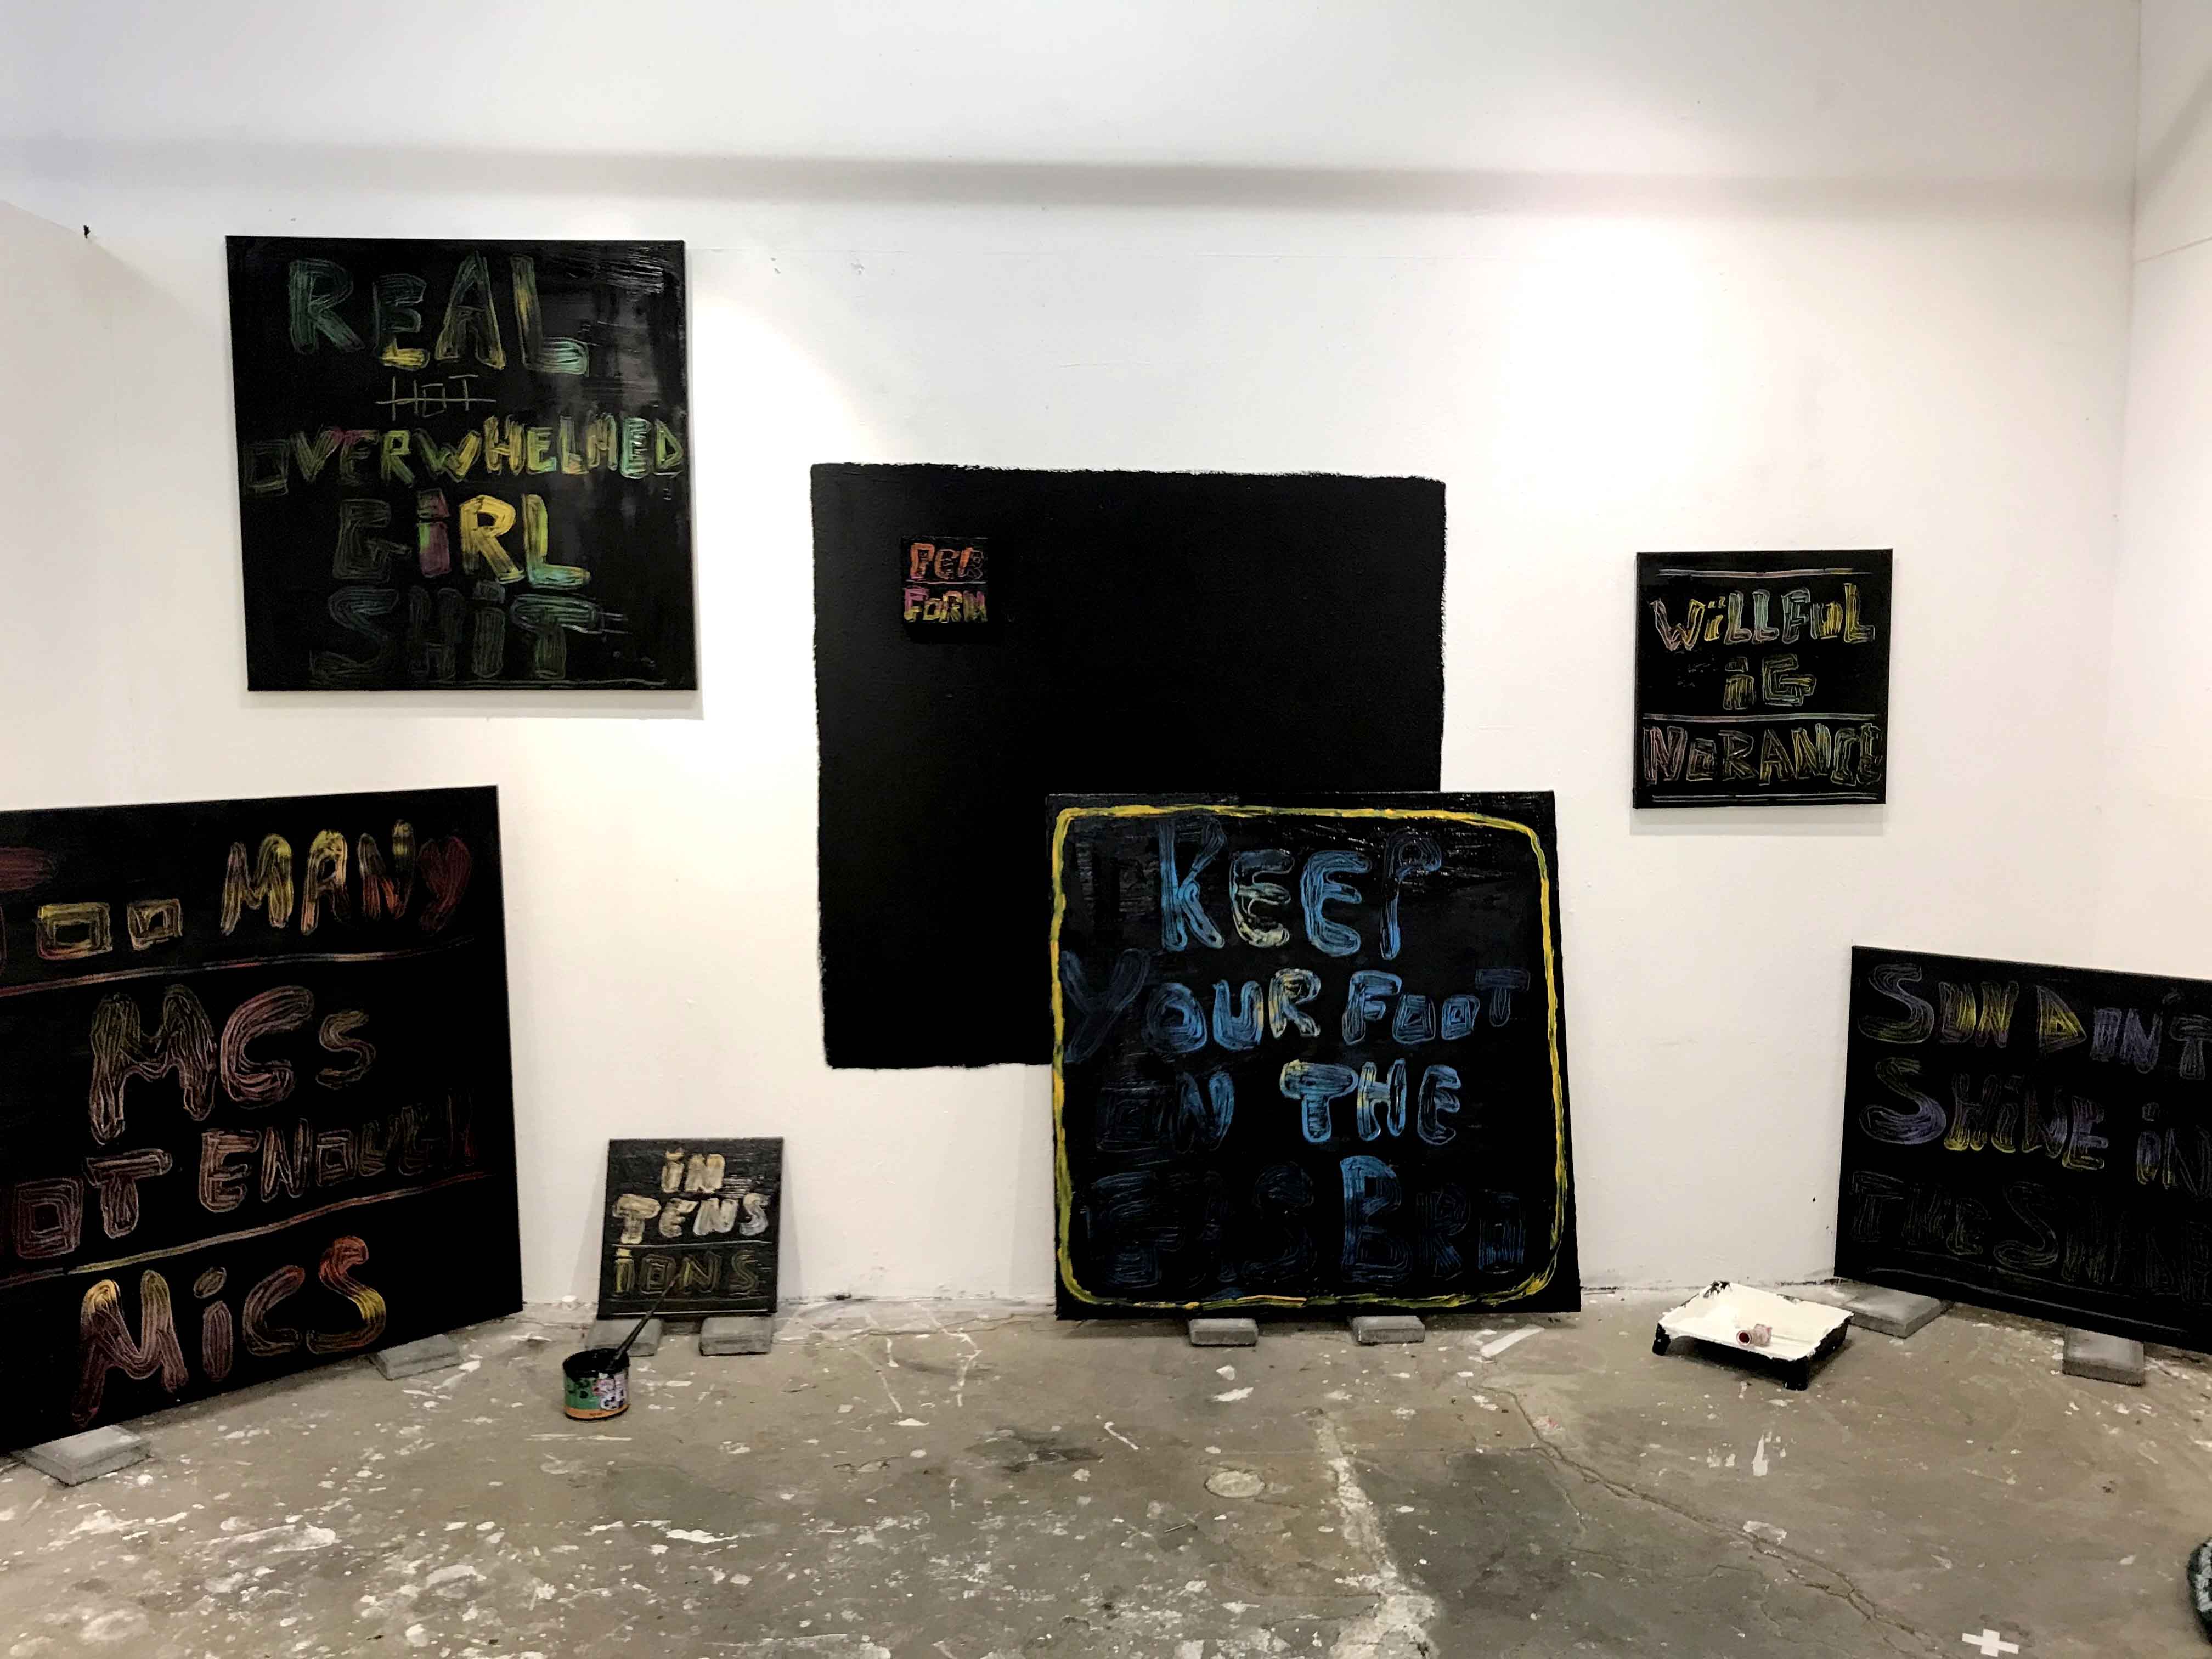 REAL
HOT
OVERWHELMED
GiRL
SHiT
PER
FORM
WiLLFUL
iG
NORANCE
TOO MANY
MCs
NOT ENOUGH
MiCS
iN
TENS
iONS
KEEP
YOUR FOOT
ON THE
BRO
SUN DON'T
SHiNE iN
THE